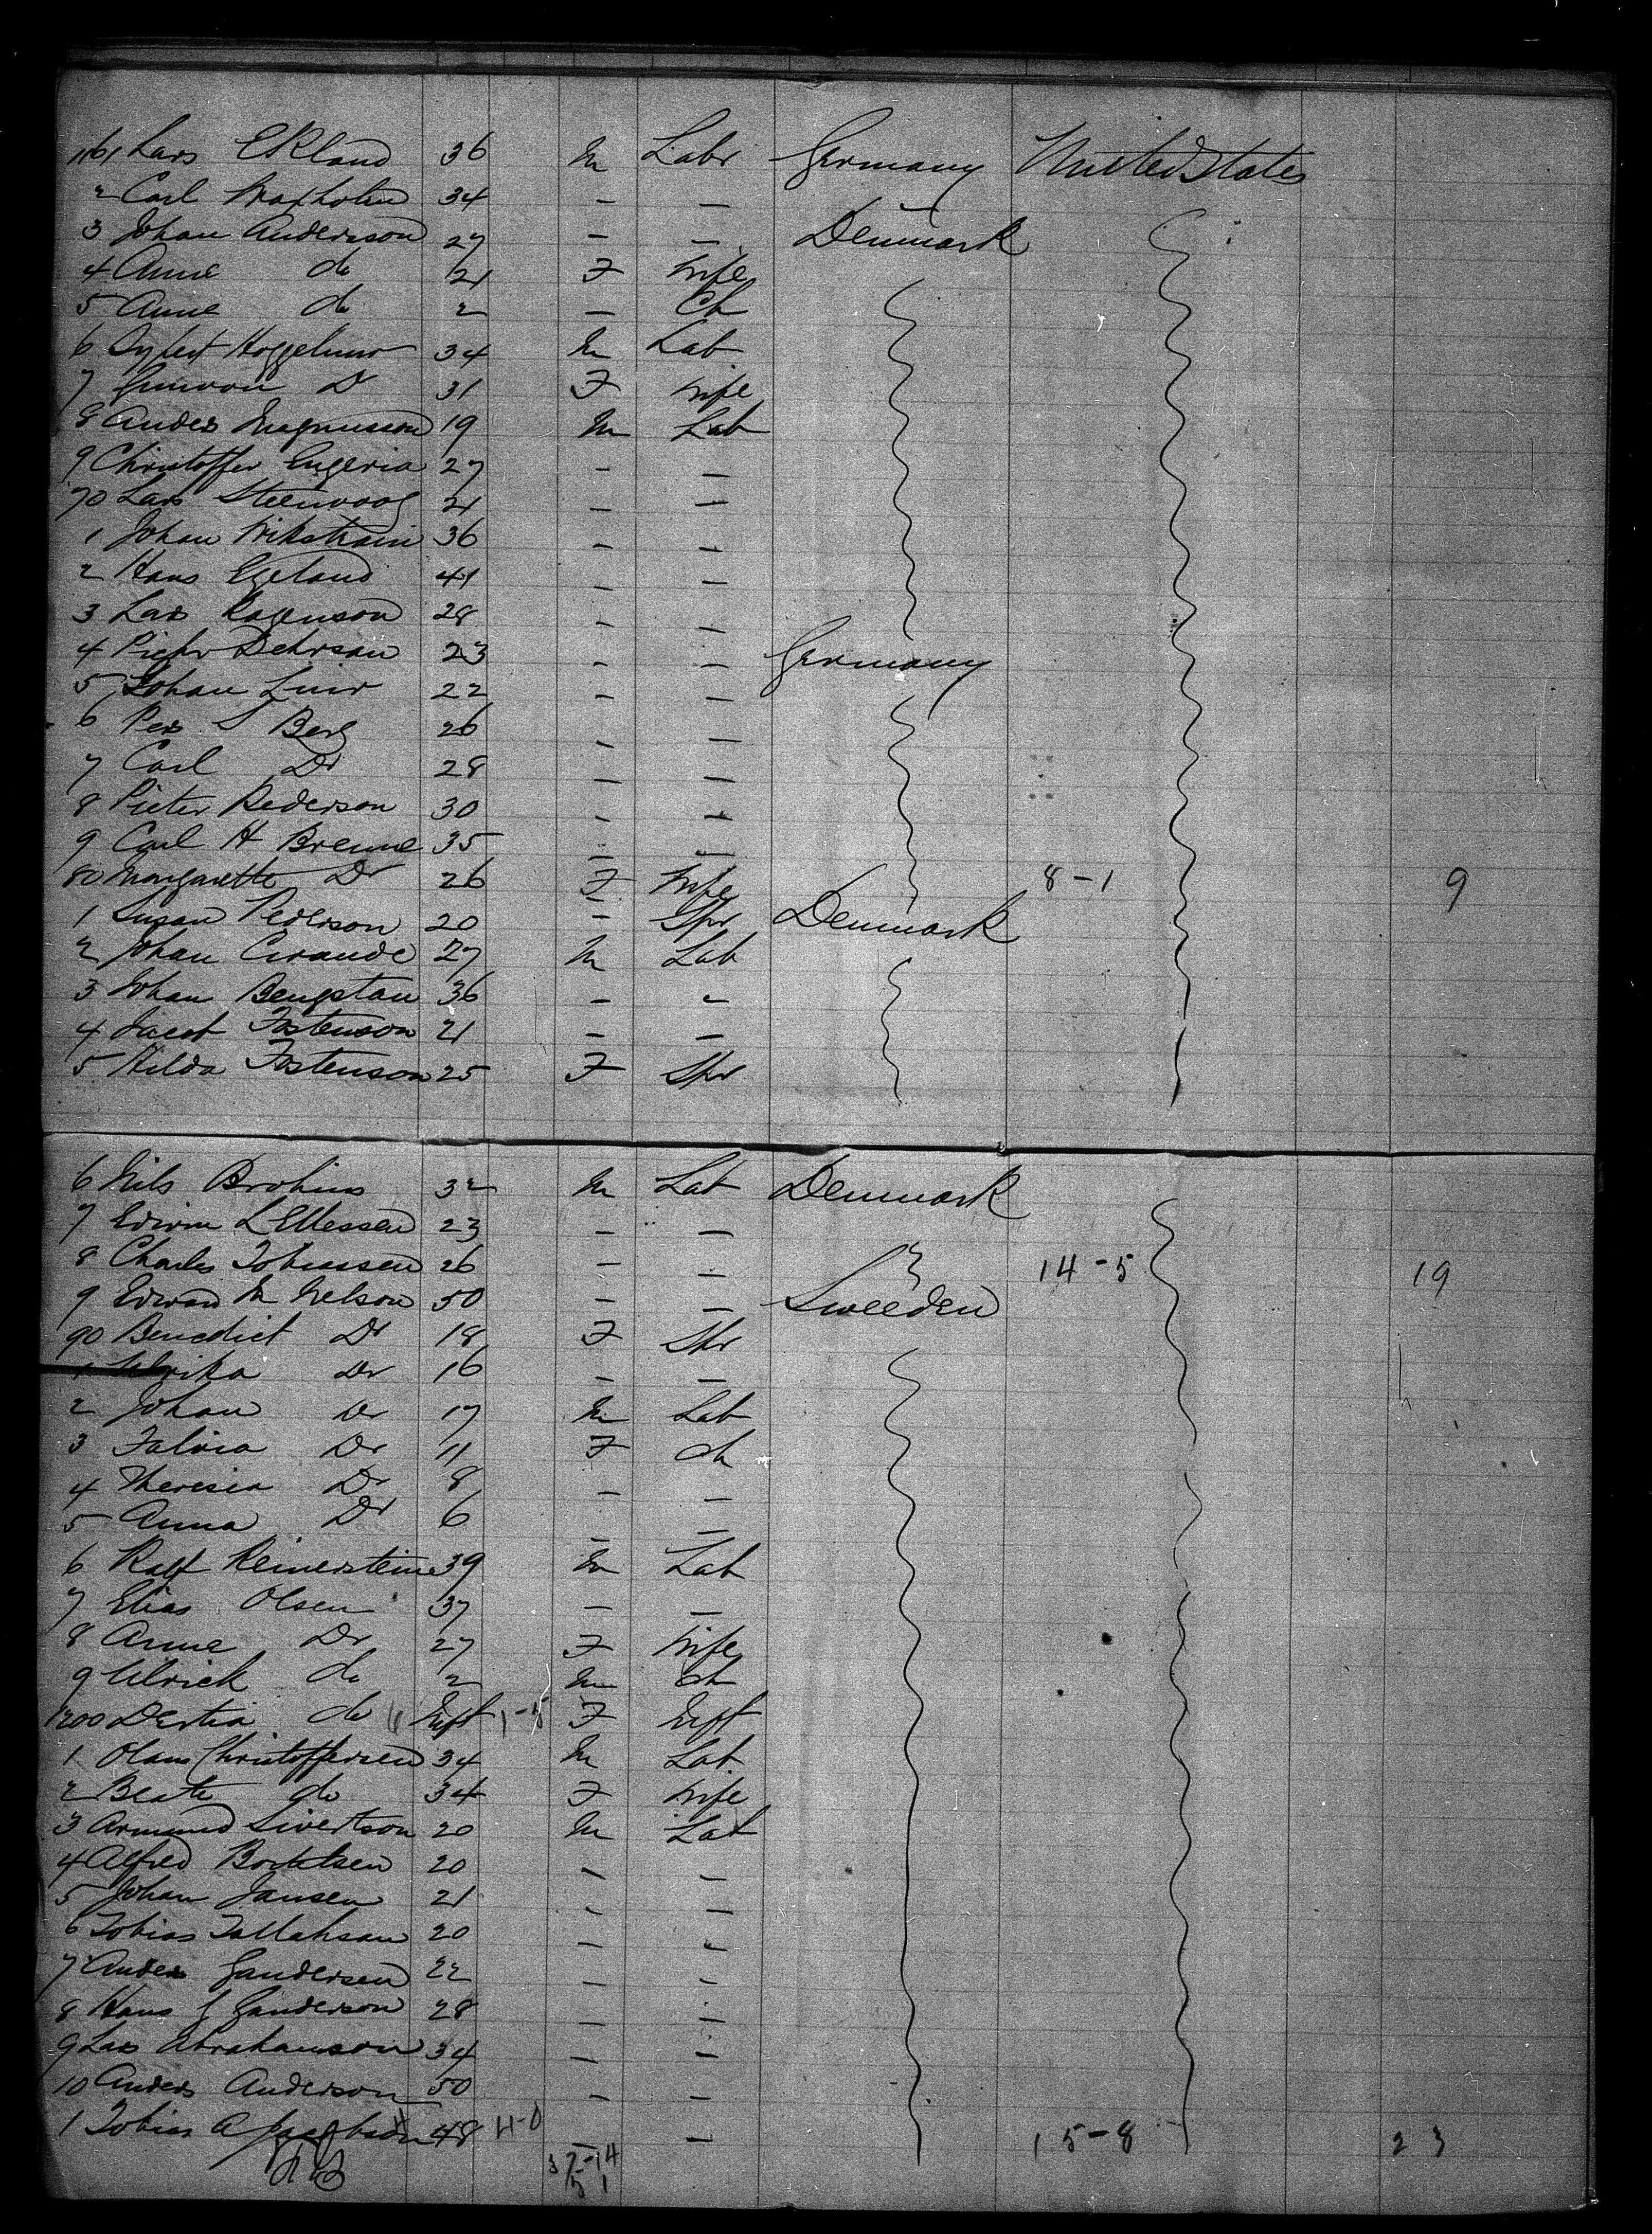 1161 Lars Ekland 36 M Labr Germany United States
2 Carl Waxholm 34 — —
3 Johan Anderson 27 — — Denmark
4 Anne do 21 F Wife
5 Anne do 2 — Ch
6 Hoggelund 34 M Lab
7 Do 31 F Wife
8 Anders Magnusson 19 M Lab
9 Christoffer Engeria 27 — —
70 Lars Steenvoog 21 — —
1 Johan Wikstrain 36 — —
2 Hans Egeland 41 — —
3 Lars Ragenson 28 — —
4 Pieter Dehrsan 23 — — Germany
5 Johan Lund 22 — —
6 Per S Berg 26 — —
7 Carl Do 28 — —
8 Pieter Pederson 30 — —
9 Carl H Brenne 35 — —
80 Margarette Do 26 F Wife 8-1 9
1 Susan Pederson 20 — Spr Denmark
2 Johan Grande 27 M Lab
3 Johan Bengstan 36 — —
4 Jacob Tostenson 21 — —
5 Hilda Tostenson 25 F Spr
6 Nils Brohius 32 M Lab Denmark
7 Edwin L Ellessen 23 — —
8 Charles Tobiassen 26 — — 14-5 19
9 Edward M Nelson 50 — — Sweeden
90 Benedict Do 18 F Spr
1 Ulrika Do 16 — —
2 Johan Do 17 M Lab
3 Do 11 F Ch
4 Theresia Do 8 — —
5 Anna Do 6 — —
6 Ralf Reinerstein 39 M Lab
7 Elias Olsen 37 — —
8 Anne Do 27 F Wife
9 Ulrick do 2 M Ch
1200 Dertia do Inft F Inft
1 Olaus Christoffersen 34 M Lab
2 Beate do 34 F Wife
3 Armund Sivertson 20 M Lab
4 Alfred 20 — —
5 Johan Jansen 21 — —
6 Tobias Tallahsan 20 — —
7 Anders Ganderson 22 — —
8 Hans G Ganderson 28 — —
9 Lars Abrahamson 34 — —
10 Anders Anderson 50 — —
1 Tobias A 48 — — 15-8 23
37-14
5 1